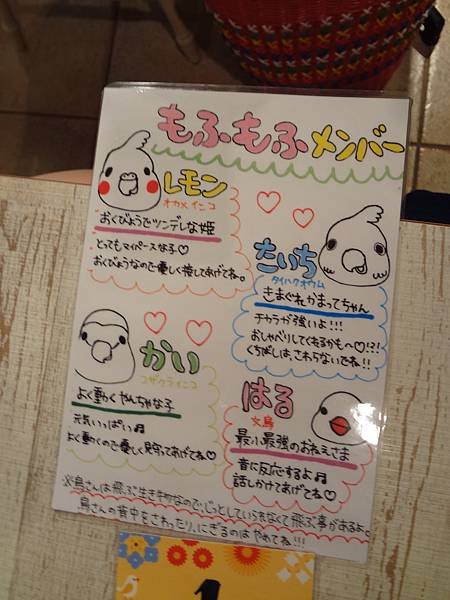 もふもふメンバー
レモン
オカメインコ
おくびょうでツンデレな姫
とってもマイペースな子♡
おくびょうなので優しく接してあげてね。
たいち
タイハクオウム
きまぐれかまってちゃん
チカラが強いよ!!!
おしゃべりしてくれるかも〜♡!?!
くちばしは、さわらないでね!!
かい
コザクラインコ
よく動くやんちゃな子
元気いっぱいっ♫
よく動くので優しく見守ってあげてね♡
はる
文鳥
最小最強のおねえさま
音に反応するよ♫
話しかけてあげてね♡
※鳥さんは飛ぶ生き物なので、じっとしていられなくて飛ぶ事があるよ。
鳥さんの背中をさわったり、にぎるのはやめてね!!!